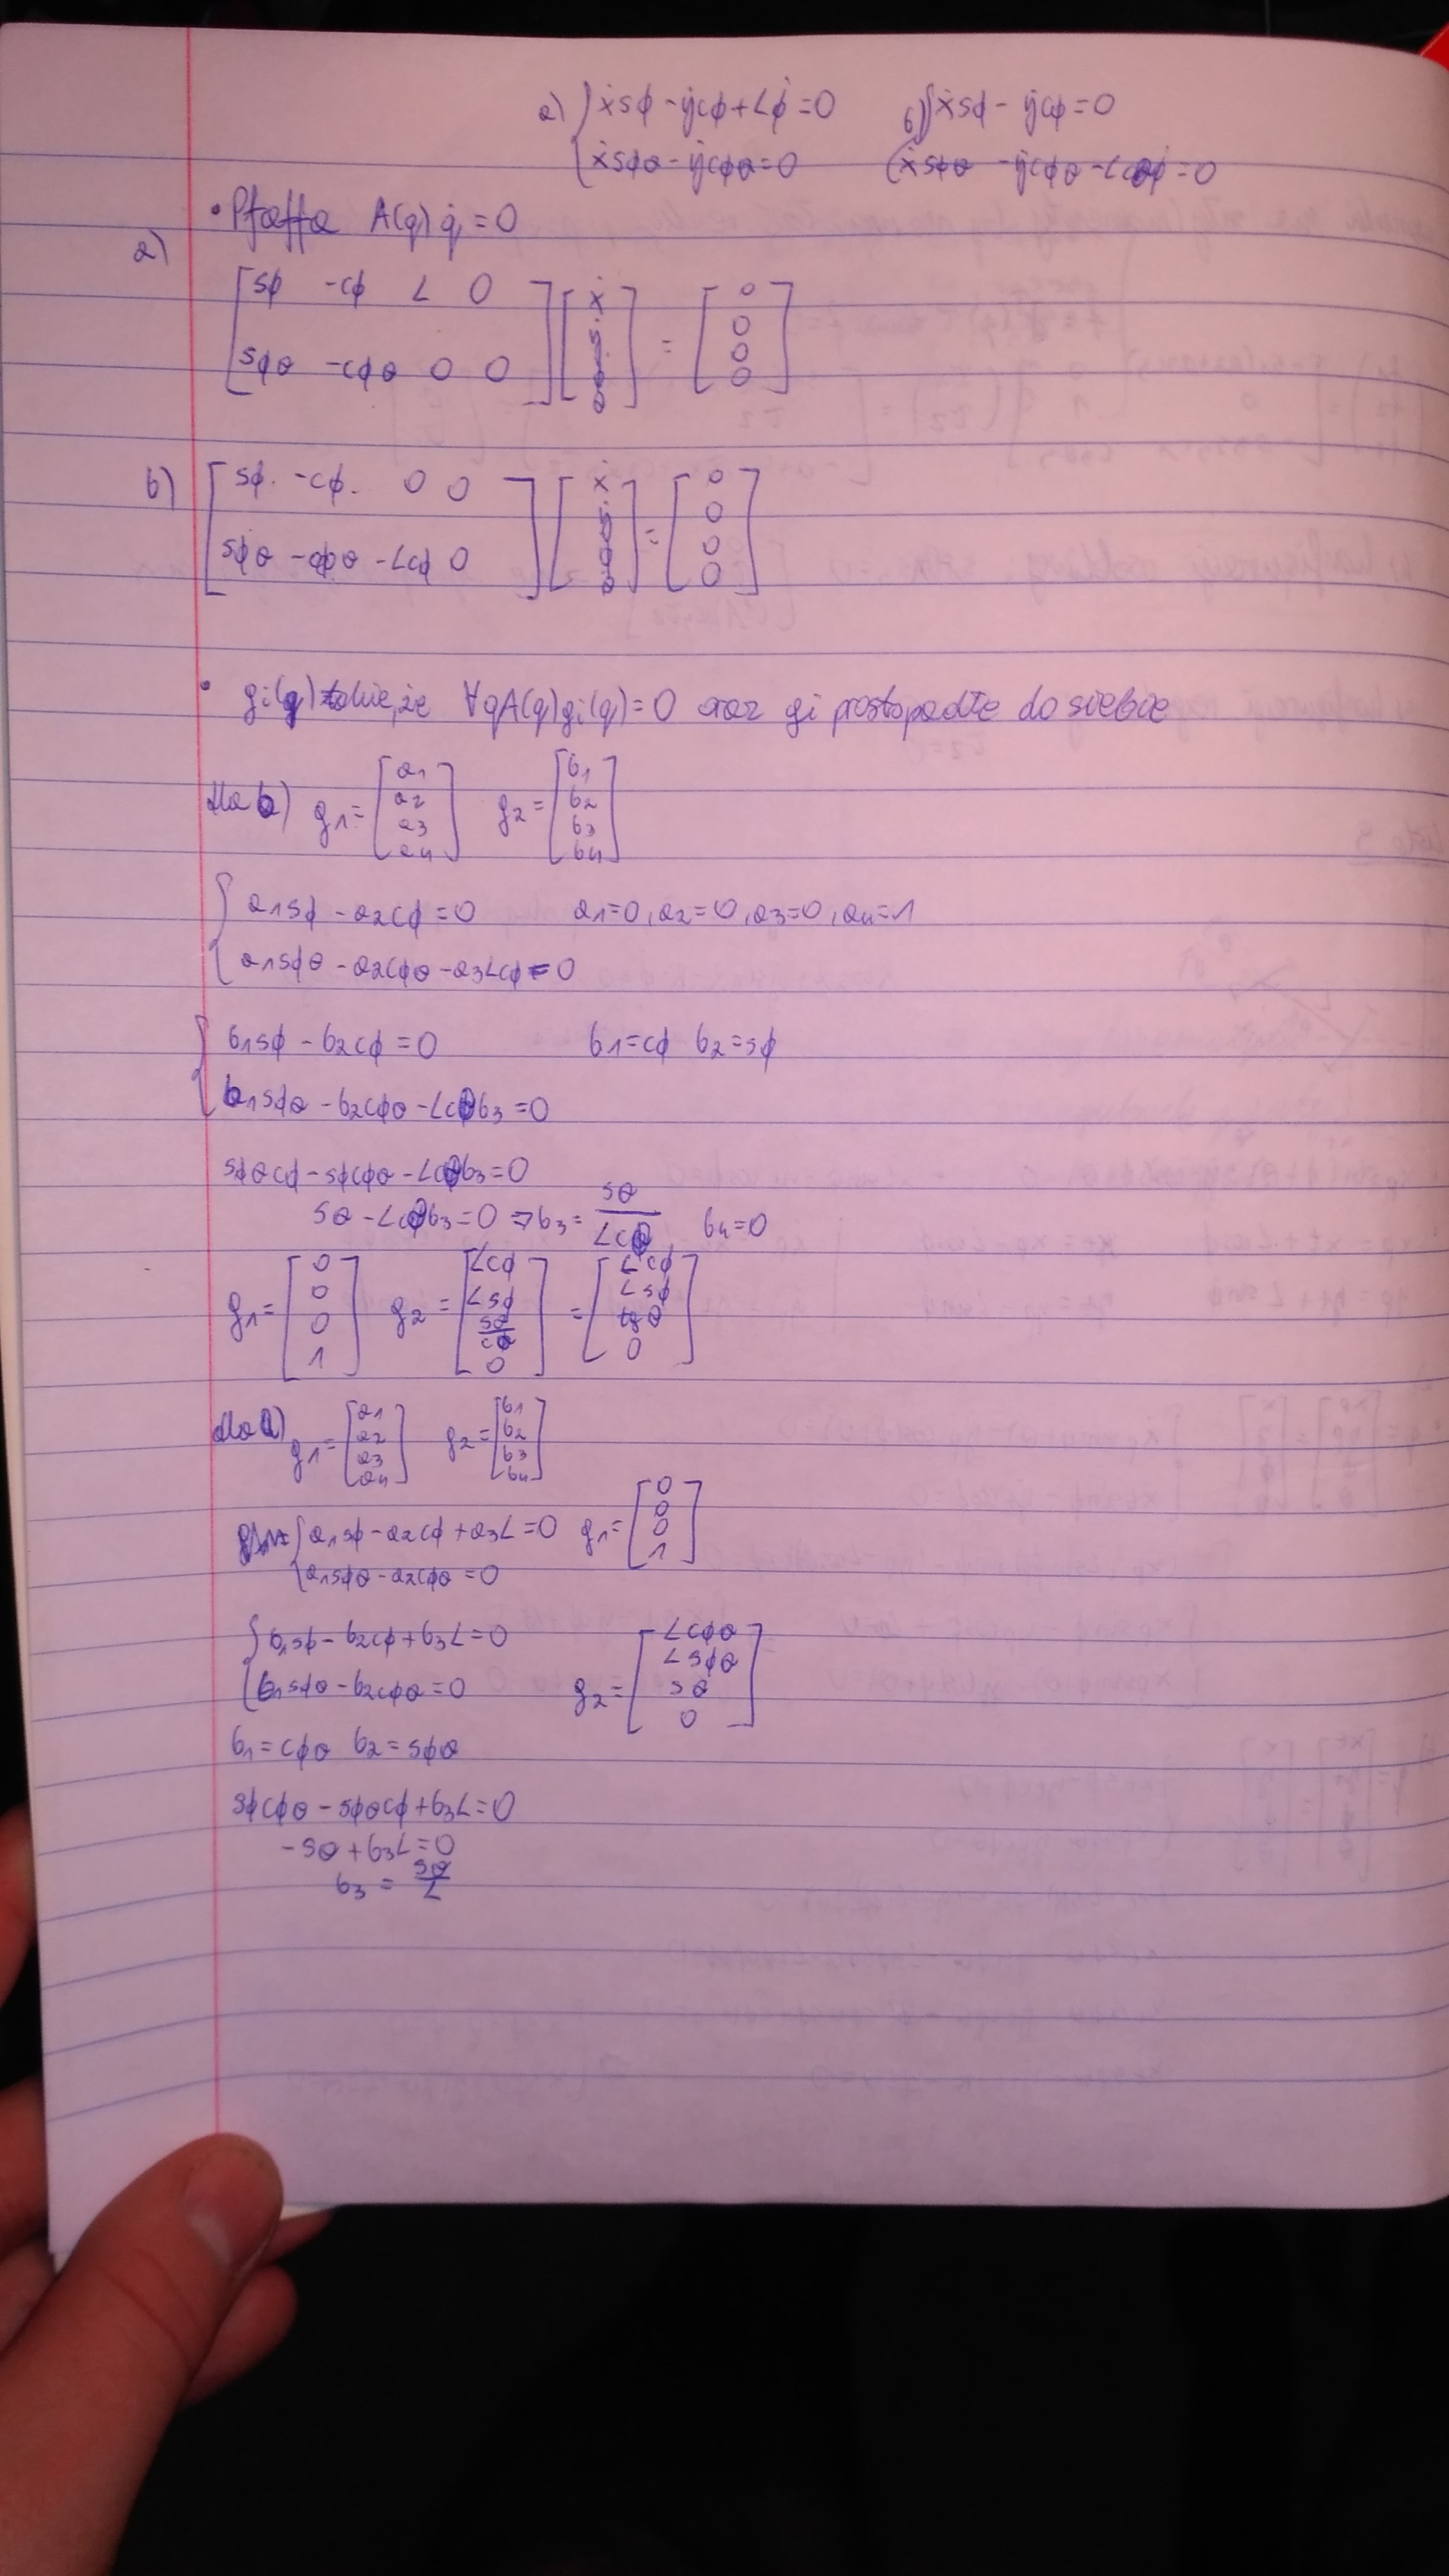 a) { ẋsϕ - ẏcϕ + Lϕ̇ = 0    b) { ẋsϕ - ẏcϕ = 0
{ ẋsϕθ - ẏcϕθ = 0    { ẋsϕθ - ẏcϕθ - Lcθϕ̇ = 0
• Pfaffa A(q) q̇ = 0
a)
[ sϕ -cϕ L 0 ] [ ẋ ] = [ 0 ]
[ 0 ]
[ 0 ]
[ sϕθ -cϕθ 0 0 ] [ 0 ]
b) [ sϕ. -cϕ. 0 0 ] [ ẋ ] = [ 0 ]
[ 0 ]
[ sϕθ -cϕθ -Lcϕ 0 ] [ 0 ]
[ 0 ]
• gi(q) takie, że ∀q A(q)gi(q) = 0 oraz gi prostopadłe do siebie
dla b) g1 = [ a1 a2 a3 a4 ] g2 = [ b1 b2 b3 b4 ]
{ a1sϕ - a2cϕ = 0    a1=0, a2=0, a3=0, a4=1
{ a1sϕθ - a2cϕθ - a3Lcϕ = 0
{ b1sϕ - b2cϕ = 0    b1=cϕ b2=sϕ
{ b1sϕθ - b2cϕθ - Lcθb3 = 0
sϕθcϕ - sϕcϕθ - Lcθb3 = 0
sθ - Lcθb3 = 0 ⇒ b3 = sθ/Lcθ b4=0
g1 = [ 0 0 0 1 ] g2 = [ Lcϕ Lsϕ sθ/cθ 0 ] = [ Lcϕ Lsϕ tgθ 0 ]
dla a) g1 = [ a1 a2 a3 a4 ] g2 = [ b1 b2 b3 b4 ]
{ a1sϕ - a2cϕ + a3L = 0 g1 = [ 0 0 0 1 ]
{ a1sϕθ - a2cϕθ = 0
{ b1sϕ - b2cϕ + b3L = 0
{ b1sϕθ - b2cϕθ = 0    g2 = [ Lcϕθ Lsϕθ sθ 0 ]
b1 = cϕθ b2 = sϕθ
sϕcϕθ - sϕθcϕ + b3L = 0
-sθ + b3L = 0
b3 = sθ/L